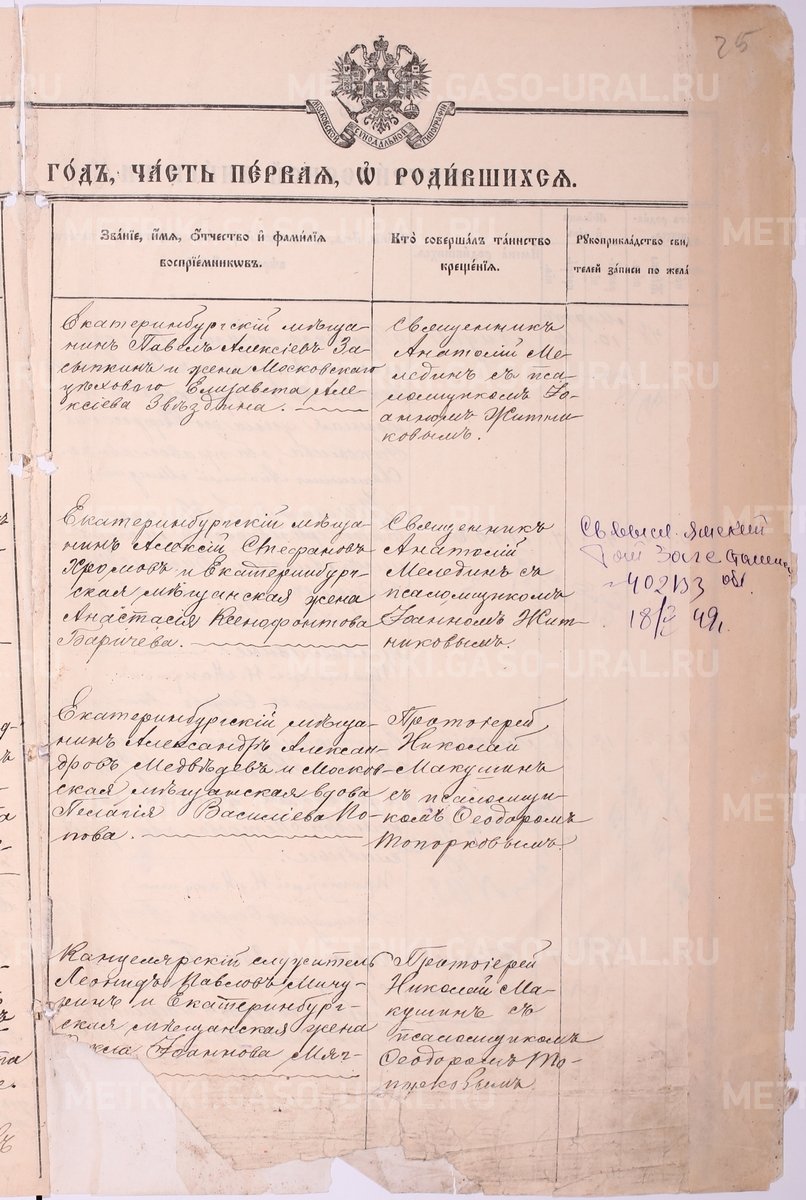 25
МОСКОВСКОЙ СѴНОДАЛЬНОЙ ТИПОГРАФІИ
ГО́ДЪ, ЧА́СТЬ ПЕ́РВАЯ, Ѡ҆ РОДИ́ВШИХСѦ.
Зва́нїе, и҆́мя, ѻ҆́тчество и҆ фами́лїя
воспрїе́мникѡвъ.
Кто̀ соверша́лъ та́инство
креще́нїѧ.
Рꙋкоприкла́дство сви
телей за́писи по жела
Екатеринбургскій мѣща-
нинъ Павелъ Алексіевъ За-
сыпкинъ и жена Московскаго
цѣховаго Елизавета Але-
ксіева Звѣздина.
Священникъ
Анатолій Ме-
лединъ съ пса-
ломщикомъ Іо-
анномъ Житни-
ковымъ.
Екатеринбургскій мѣща-
нинъ Алексій Стефановъ
Хромовъ и Екатеринбург-
ская мѣщанская жена
Анастасія Ксенофонтова
Баричева.
Священникъ
Анатолій
Мелединъ съ
псаломщикомъ
Іоанномъ Жит-
никовымъ.
402133
18/ 49г.
Екатеринбургскій мѣща-
нинъ Александръ Алексан-
дровъ Медвѣдевъ и Москов-
ская мѣщанская вдова
Пелагія Василіева По-
пова.
Протоіерей
Николай
Макушинъ
съ псаломщи-
комъ Ѳеодоромъ
Топорковымъ.
Канцелярскій служитель
Леонидъ Павловъ Мичу-
ринъ и Екатеринбург-
ская мѣщанская жена
Іоаннова Мяч-
Протоіерей
Николай Ма-
кушинъ съ
псаломщикомъ
Ѳеодоромъ То-
порковымъ
METRIKI.GASO-URAL.RU